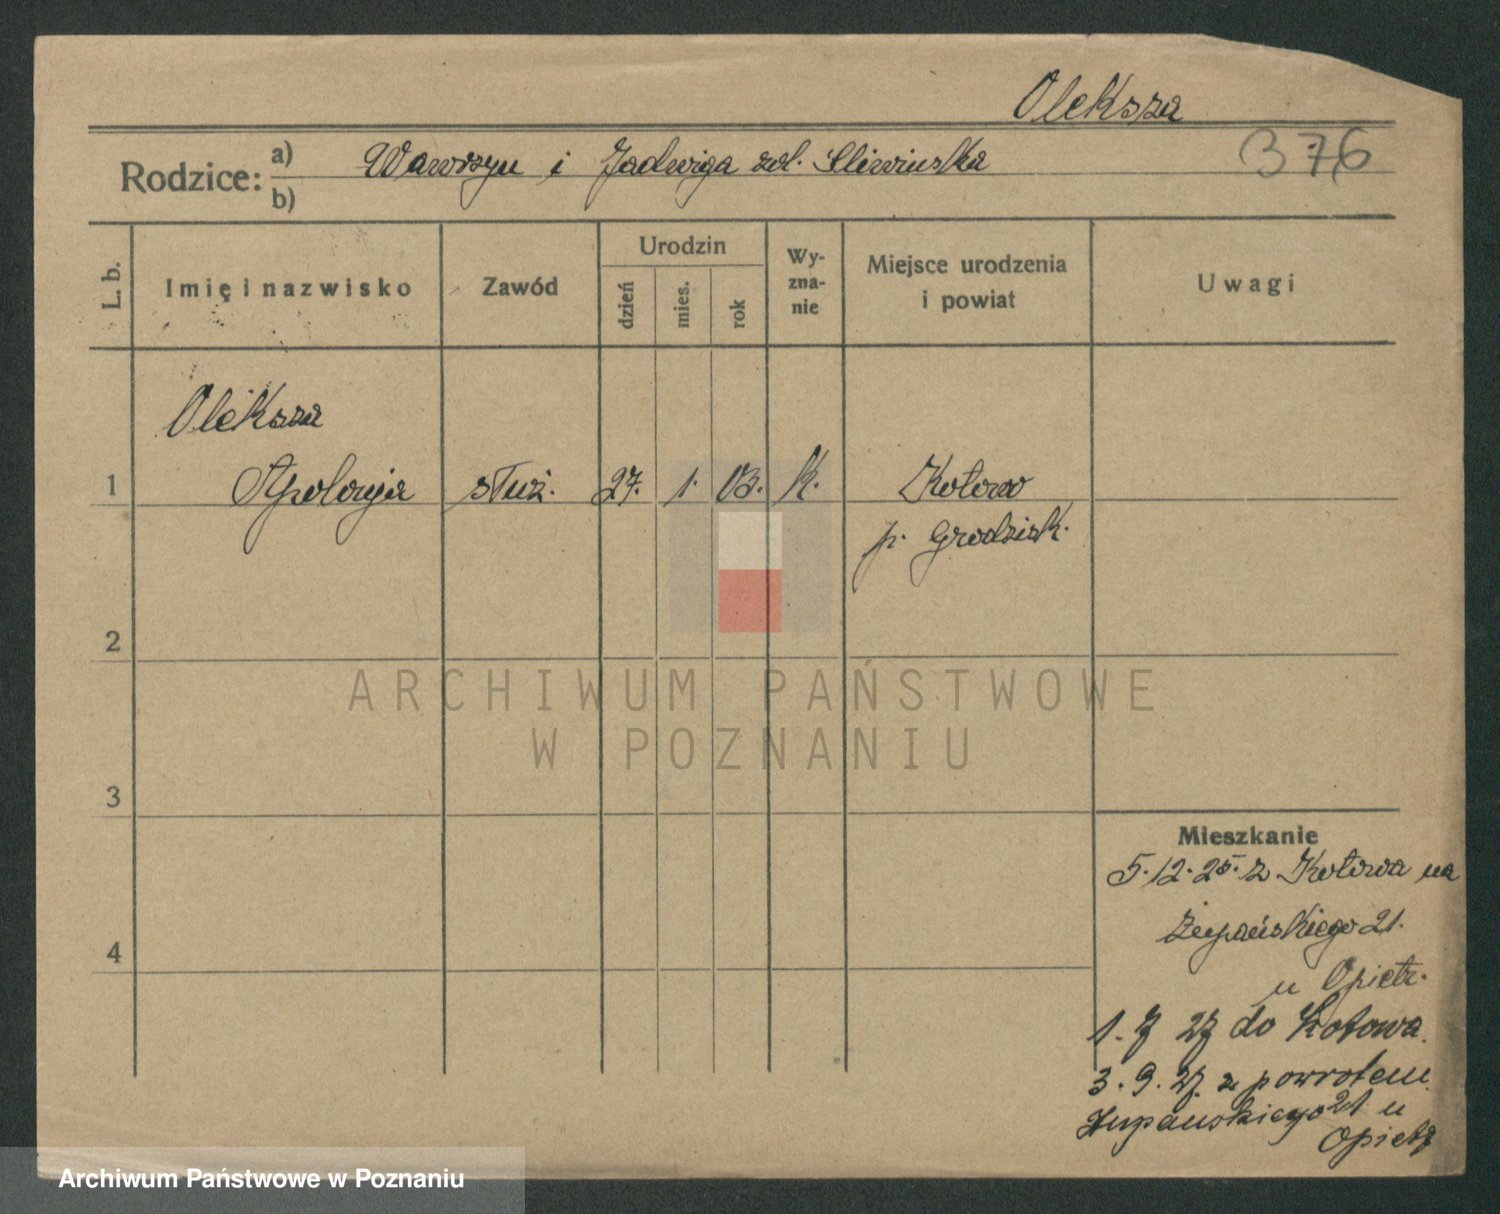 Oleksza
376
Rodzice: a) Wawrzyn i Jadwiga zd. Sliwinska
b)
L. b.
Imię i nazwisko
Zawód
Urodzin
dzień
mies.
rok
Wy-
zna-
nie
Miejsce urodzenia
i powiat
Uwagi
Oleksza
1 Apolonja służ. 27. 1. 03. k. Kotowo
p. Grodzisk.
2
3
4
ARCHIWUM PAŃSTWOWE
W POZNANIU
Mieszkanie
5.12.25. z Kotowa na
Żupańskiego 21.
u Opietz.
1. 7 27 do Kotowa.
3. 9. 27. z powrotem
Żupanskiego 21 u
Opietz
Archiwum Państwowe w Poznaniu